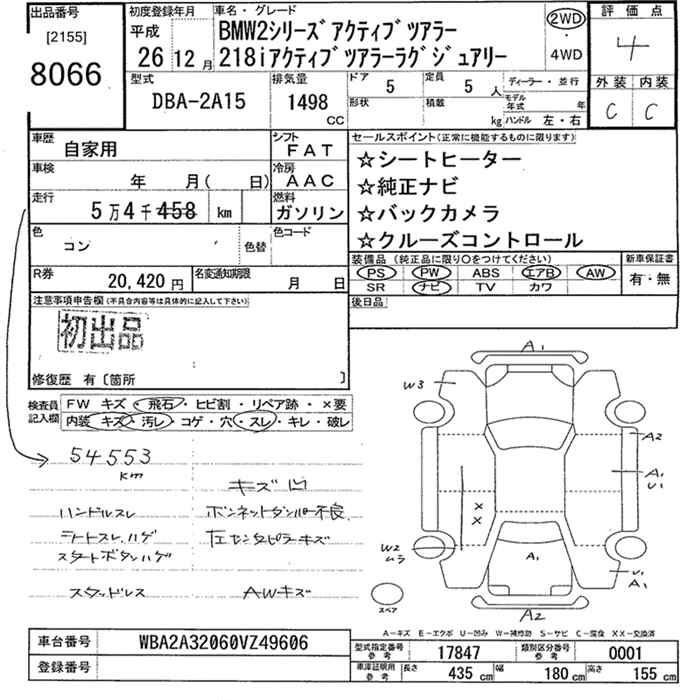 出品番号
[2155]
8066
初度登録年月
平成
26 12月
車名・グレード
BMW2シリーズアクティブツアラー
218iアクティブツアラーラグジュアリー
2WD
・
4WD
評価点
4
外装 内装
C C
型式
DBA-2A15
排気量
1498
CC
ドア
5
定員
5人
形状
積載
kg
ディーラー・並行
モデル年式 年
ハンドル 左・右
車歴
自家用
シフト
FAT
車検
年 月( 日)
冷房
AAC
走行
5万4千458 km
燃料
ガソリン
色
コン
色替
色コード
R券
20,420円
名変通知期限
月 日
セールスポイント(正常に機能するものに限ります)
☆シートヒーター
☆純正ナビ
☆バックカメラ
☆クルーズコントロール
装備品 (純正品に限り○をつけてください)
PS PW ABS エアB AW
SR ナビ TV カワ
新車保証書
有・無
後日品
注意事項申告欄(不具合内容等は具体的に記入して下さい)
初出品
修復歴 有〔箇所 〕
検査員記入欄
FW キズ・飛石・ヒビ割・リペア跡・×要
内装 キズ・汚レ・コゲ・穴・スレ・キレ・破レ
54553
km
キズ凹
ハンドルスレ
ボンネットダンパー不良
シートスレ、ハゲ
左センタピラーキズ
スタートボタンハゲ
スタッドレス
AWキズ
A1
W3
A2
A1
U1
X
X
W2
ムラ
A1
U1
A1
スペア
A2
A-キズ E-エクボ U-凹み W-補修跡 S-サビ C-腐食 XX-交換済
車台番号
WBA2A32060VZ49606
登録番号
型式指定番号
参考
17847
類別区分番号
参考
0001
車庫証明用
参考
長さ
435 cm
幅
180 cm
高さ
155 cm